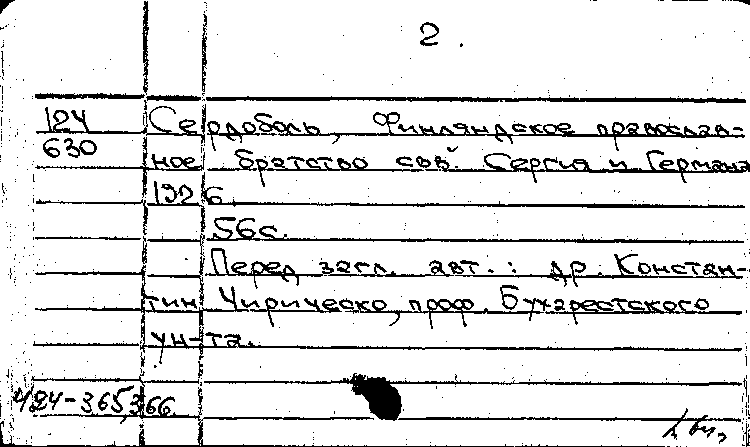 2.
124 Сердоболь, Финляндское православ=
630 ное братство свв. Сергия и Германа
1926.
56с.
Перед загл. авт.: др. Констан-
тин Чирическо, проф. Бухарестского
ун-та.
4/24-365,366